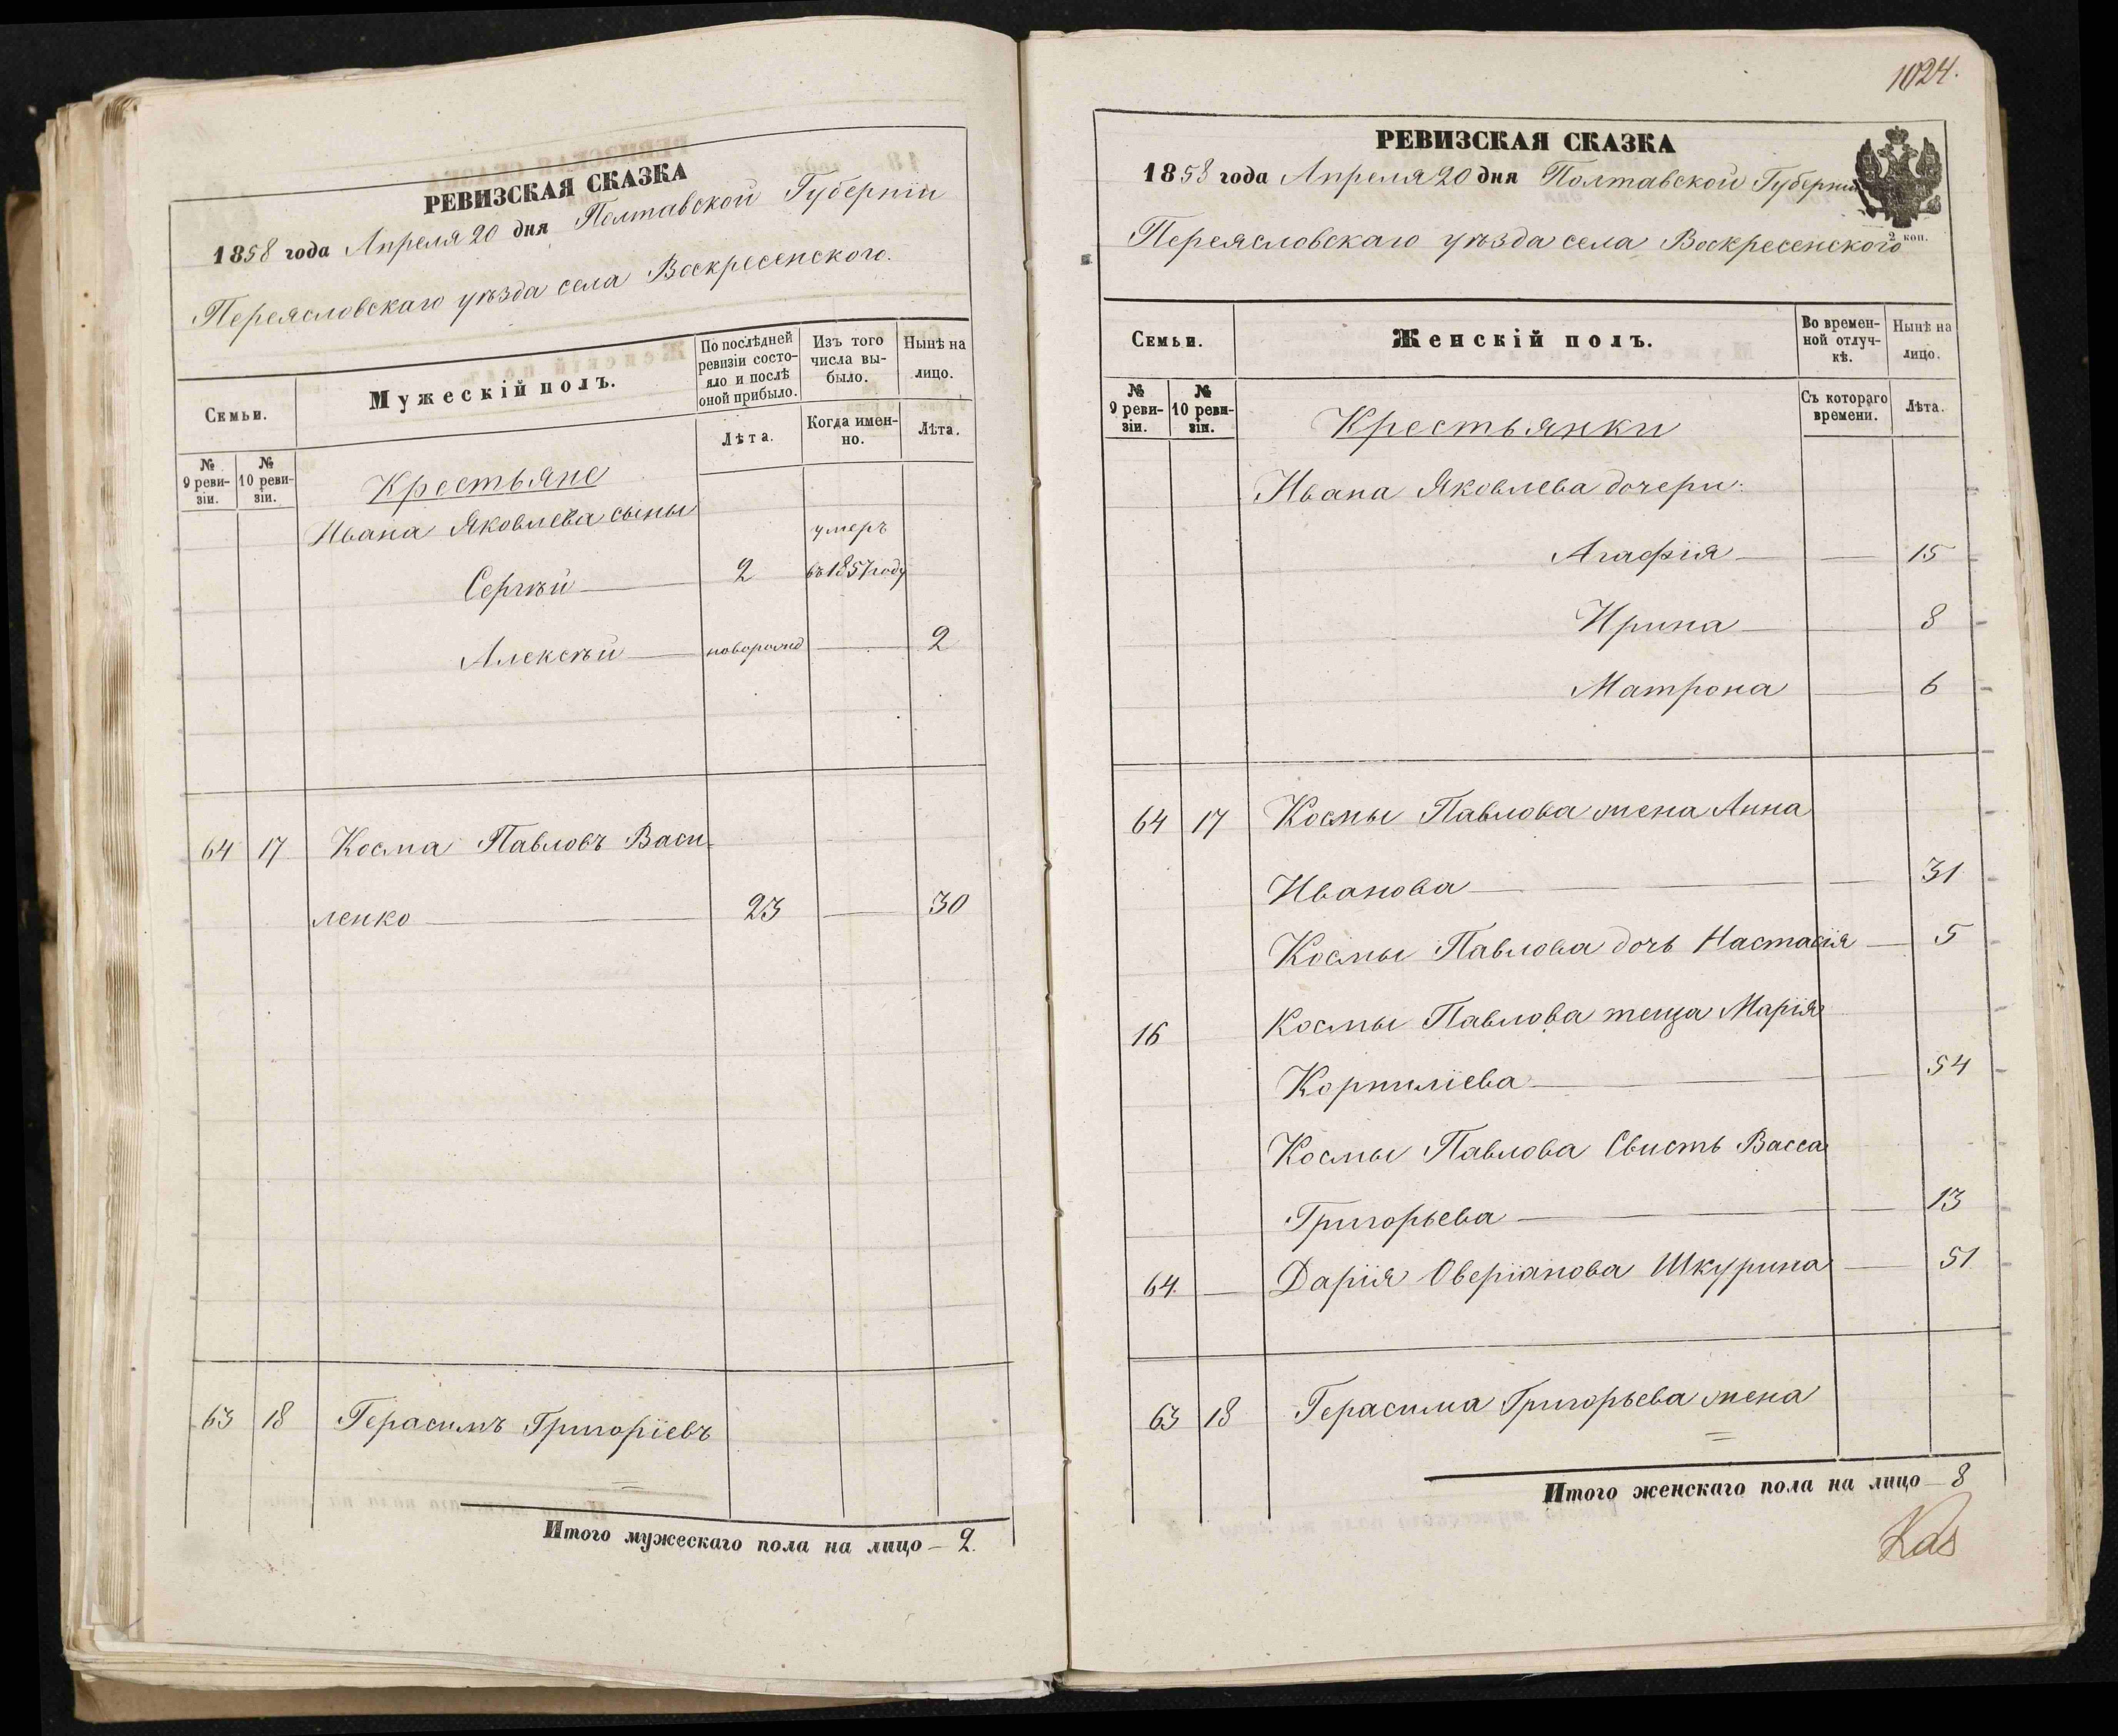 РЕВИЗСКАЯ СКАЗКА
1858 года Апреля 20 дня Полтавской Губерніи
Переясловскаго уѣзда села Воскресенского.
Семьи.
Мужескій полъ.
По послѣдней ревизіи состо-
яло и послѣ оной прибыло.
Изъ того числа вы-
было.
Нынѣ на лицо.
№ 9 реви-
зіи.
№ 10 реви-
зіи.
Лѣта.
Когда имен-
но.
Лѣта.
Крестьяне
Ивана Яковлева сыны
умеръ
Сергѣй 2 въ 1857 году
Алексѣй новорожд 2
64 17 Косма Павловъ Васи-
ленко 23 30
63 18 Герасимъ Григоріевъ
=
Итого мужескаго пола на лицо – 2.
1024.
РЕВИЗСКАЯ СКАЗКА
1858 года Апреля 20 дня Полтавской Губерніи
Переясловскаго уѣзда села Воскресенского
2 коп.
Семьи.
Женскій полъ.
Во времен-
ной отлуч-
кѣ.
Нынѣ на лицо.
№ 9 реви-
зіи.
№ 10 реви-
зіи.
Съ котораго времени.
Лѣта.
Крестьянки
Ивана Яковлева дочери:
Агафія 15
Ирина 8
Матрона 6
64 17 Космы Павлова жена Анна
Иванова 31
Космы Павлова дочь Настасія 5
16 Космы Павлова теща Марія
Корнилієва 54
Космы Павлова Свисть Васса
Григорьева 13
64. — Дарія Оверіанова Шкурина 51
63 18 Герасима Григорьева жена
=
Итого женскаго пола на лицо – 8